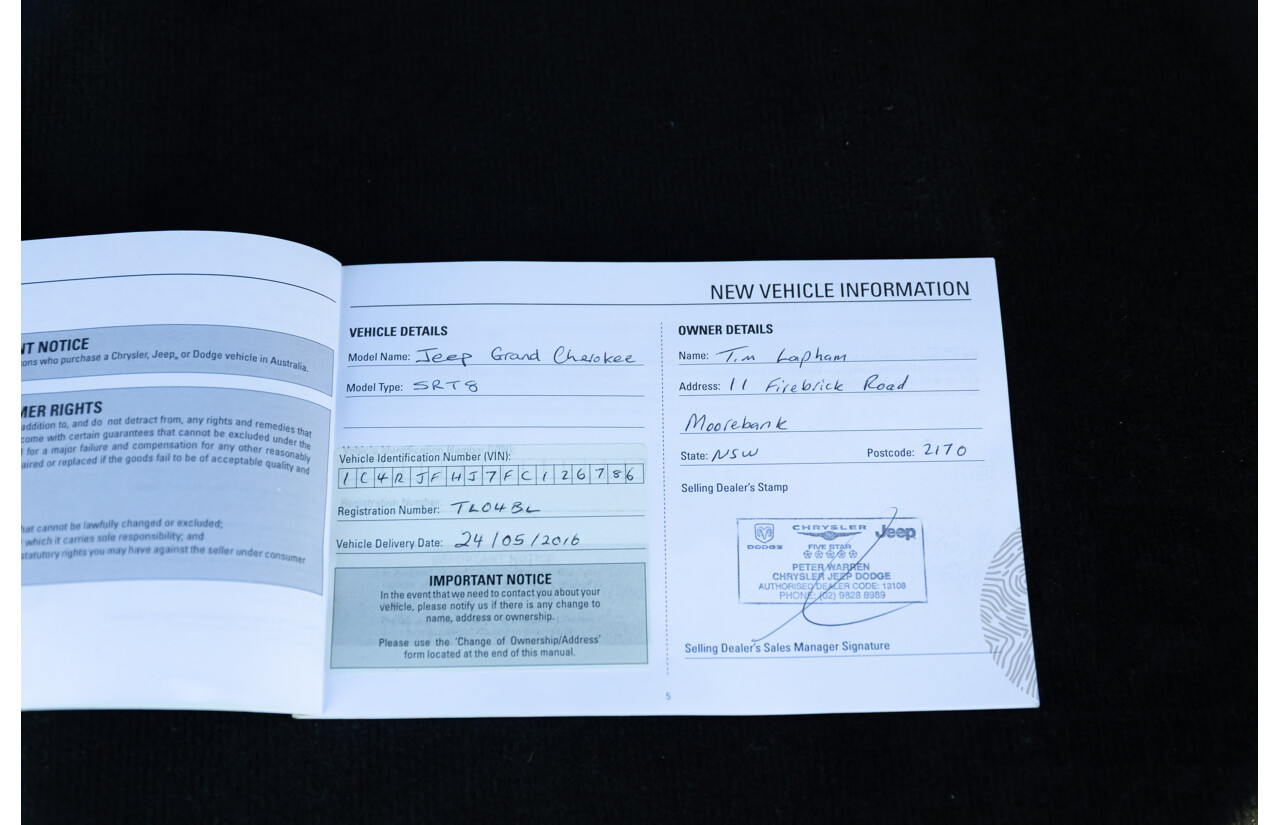 NT NOTICE
ons who purchase a Chrysler, Jeep, or Dodge vehicle in Australia.
MER RIGHTS
addition to, and do not detract from, any rights and remedies that
come with certain guarantees that cannot be excluded under the
for a major failure and compensation for any other reasonably
aired or replaced if the goods fail to be of acceptable quality and
hat cannot be lawfully changed or excluded;
which it carries sole responsibility; and
statutory rights you may have against the seller under consumer
NEW VEHICLE INFORMATION
VEHICLE DETAILS
Model Name: Jeep Grand Cherokee
Model Type: SRT8
Vehicle Identification Number (VIN):
1C4RJFHJ7FC126786
Registration Number: TL04BL
Vehicle Delivery Date: 24/05/2016
IMPORTANT NOTICE
In the event that we need to contact you about your
vehicle, please notify us if there is any change to
name, address or ownership.
Please use the 'Change of Ownership/Address'
form located at the end of this manual.
OWNER DETAILS
Name: Tim Lapham
Address: 11 Firebrick Road
Moorebank
State: NSW Postcode: 2170
Selling Dealer's Stamp
DODGE CHRYSLER Jeep
FIVE STAR
PETER WARREN
CHRYSLER JEEP DODGE
AUTHORISED DEALER CODE: 13108
PHONE: (02) 9828 8989
Selling Dealer's Sales Manager Signature
5